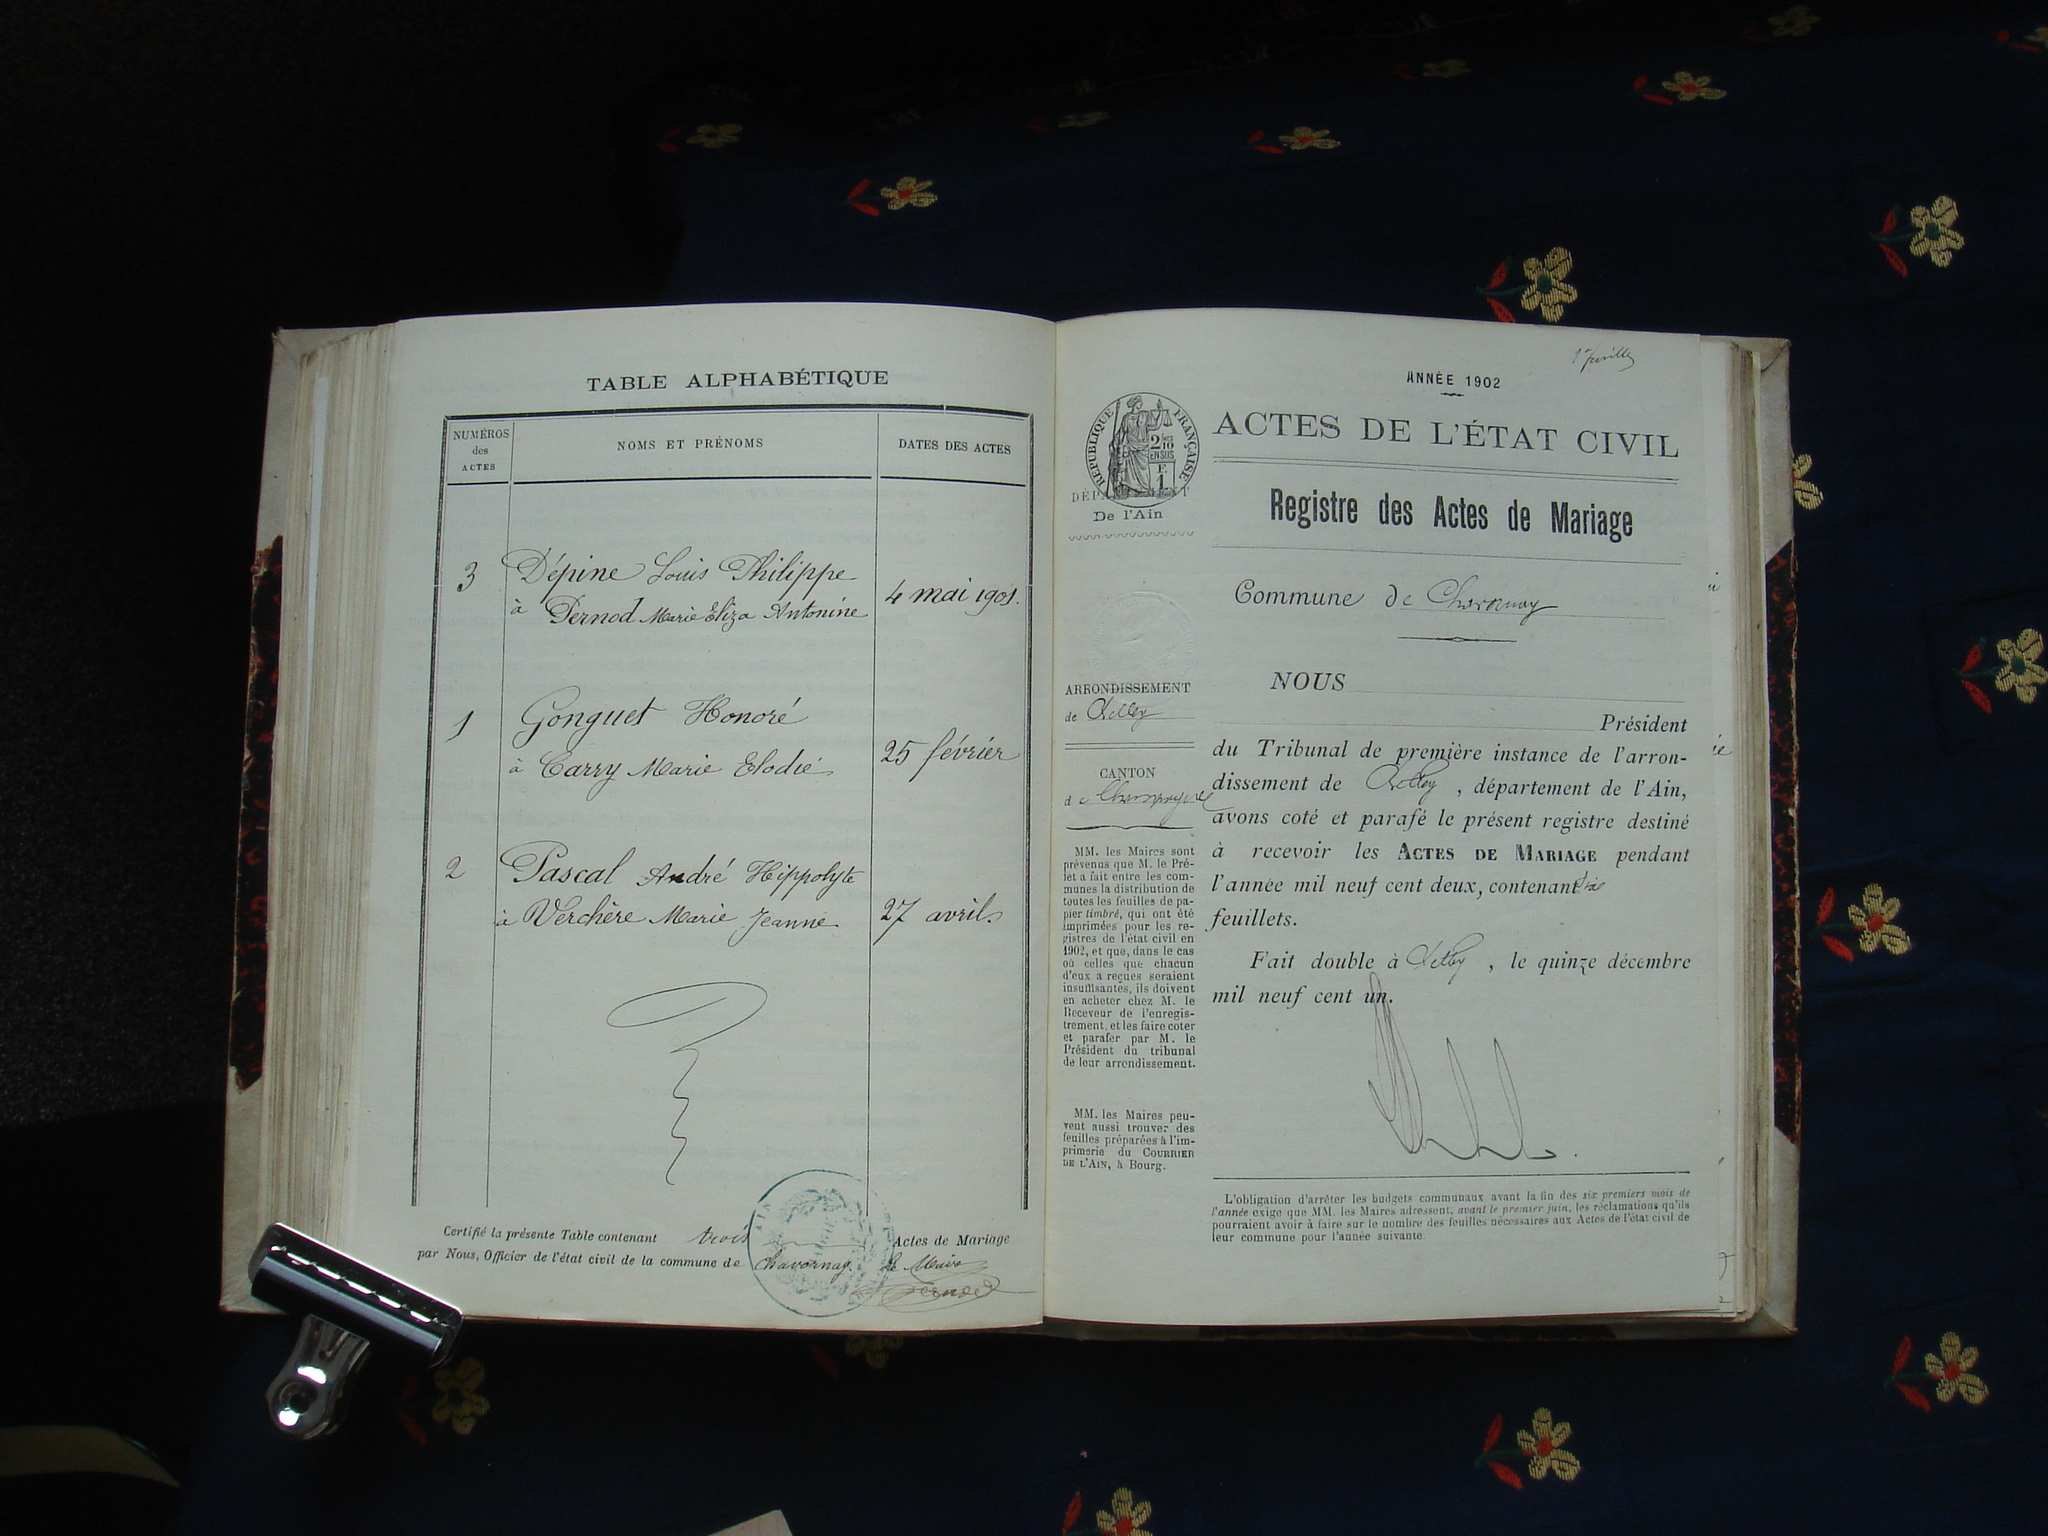 TABLE ALPHABÉTIQUE
NUMÉROS
des
ACTES
NOMS ET PRÉNOMS
DATES DES ACTES
3 Dépine Louis Philippe
à Pernod Marie Eliza Antonine
4 mai 1901.
1 Gonguet Honoré
à Carry Marie Elodie
25 février
2 Pascal André Hippolyte
à Verchère Marie Jeanne
27 avril
Certifié la présente Table contenant trois Actes de Mariage
par Nous, Officier de l'état civil de la commune de Chavornay. Le Maire
Pernod
ANNÉE 1902
RÉPUBLIQUE FRANÇAISE
2/10
EN SUS
F.
1
ACTES DE L'ÉTAT CIVIL
DÉPARTEMENT
De l'Ain
Registre des Actes de Mariage
Commune de Chavornay
ARRONDISSEMENT
de Belley
CANTON
de Champagne
MM. les Maires sont
prévenus que M. le Pré-
fet a fait entre les com-
munes la distribution de
toutes les feuilles de pa-
pier timbré, qui ont été
imprimées pour les re-
gistres de l'état civil en
1902, et que, dans le cas
où celles que chacun
d'eux a reçues seraient
insuffisantes, ils doivent
en acheter chez M. le
Receveur de l'enregis-
trement, et les faire coter
et parafer par M. le
Président du tribunal
de leur arrondissement.
MM. les Maires peu-
vent aussi trouver des
feuilles préparées à l'im-
primerie du COURRIER
DE L'AIN, à Bourg.
NOUS
Président
du Tribunal de première instance de l'arron-
dissement de Belley, département de l'Ain,
avons coté et parafé le présent registre destiné
à recevoir les ACTES DE MARIAGE pendant
l'année mil neuf cent deux, contenant
feuillets.
Fait double à Belley, le quinze décembre
mil neuf cent un.
L'obligation d'arrêter les budgets communaux avant la fin des six premiers mois de
l'année exige que MM. les Maires adressent, avant le premier juin, les réclamations qu'ils
pourraient avoir à faire sur le nombre des feuilles nécessaires aux Actes de l'état civil de
leur commune pour l'année suivante.